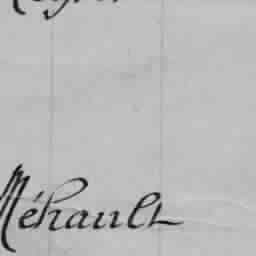 Méhault